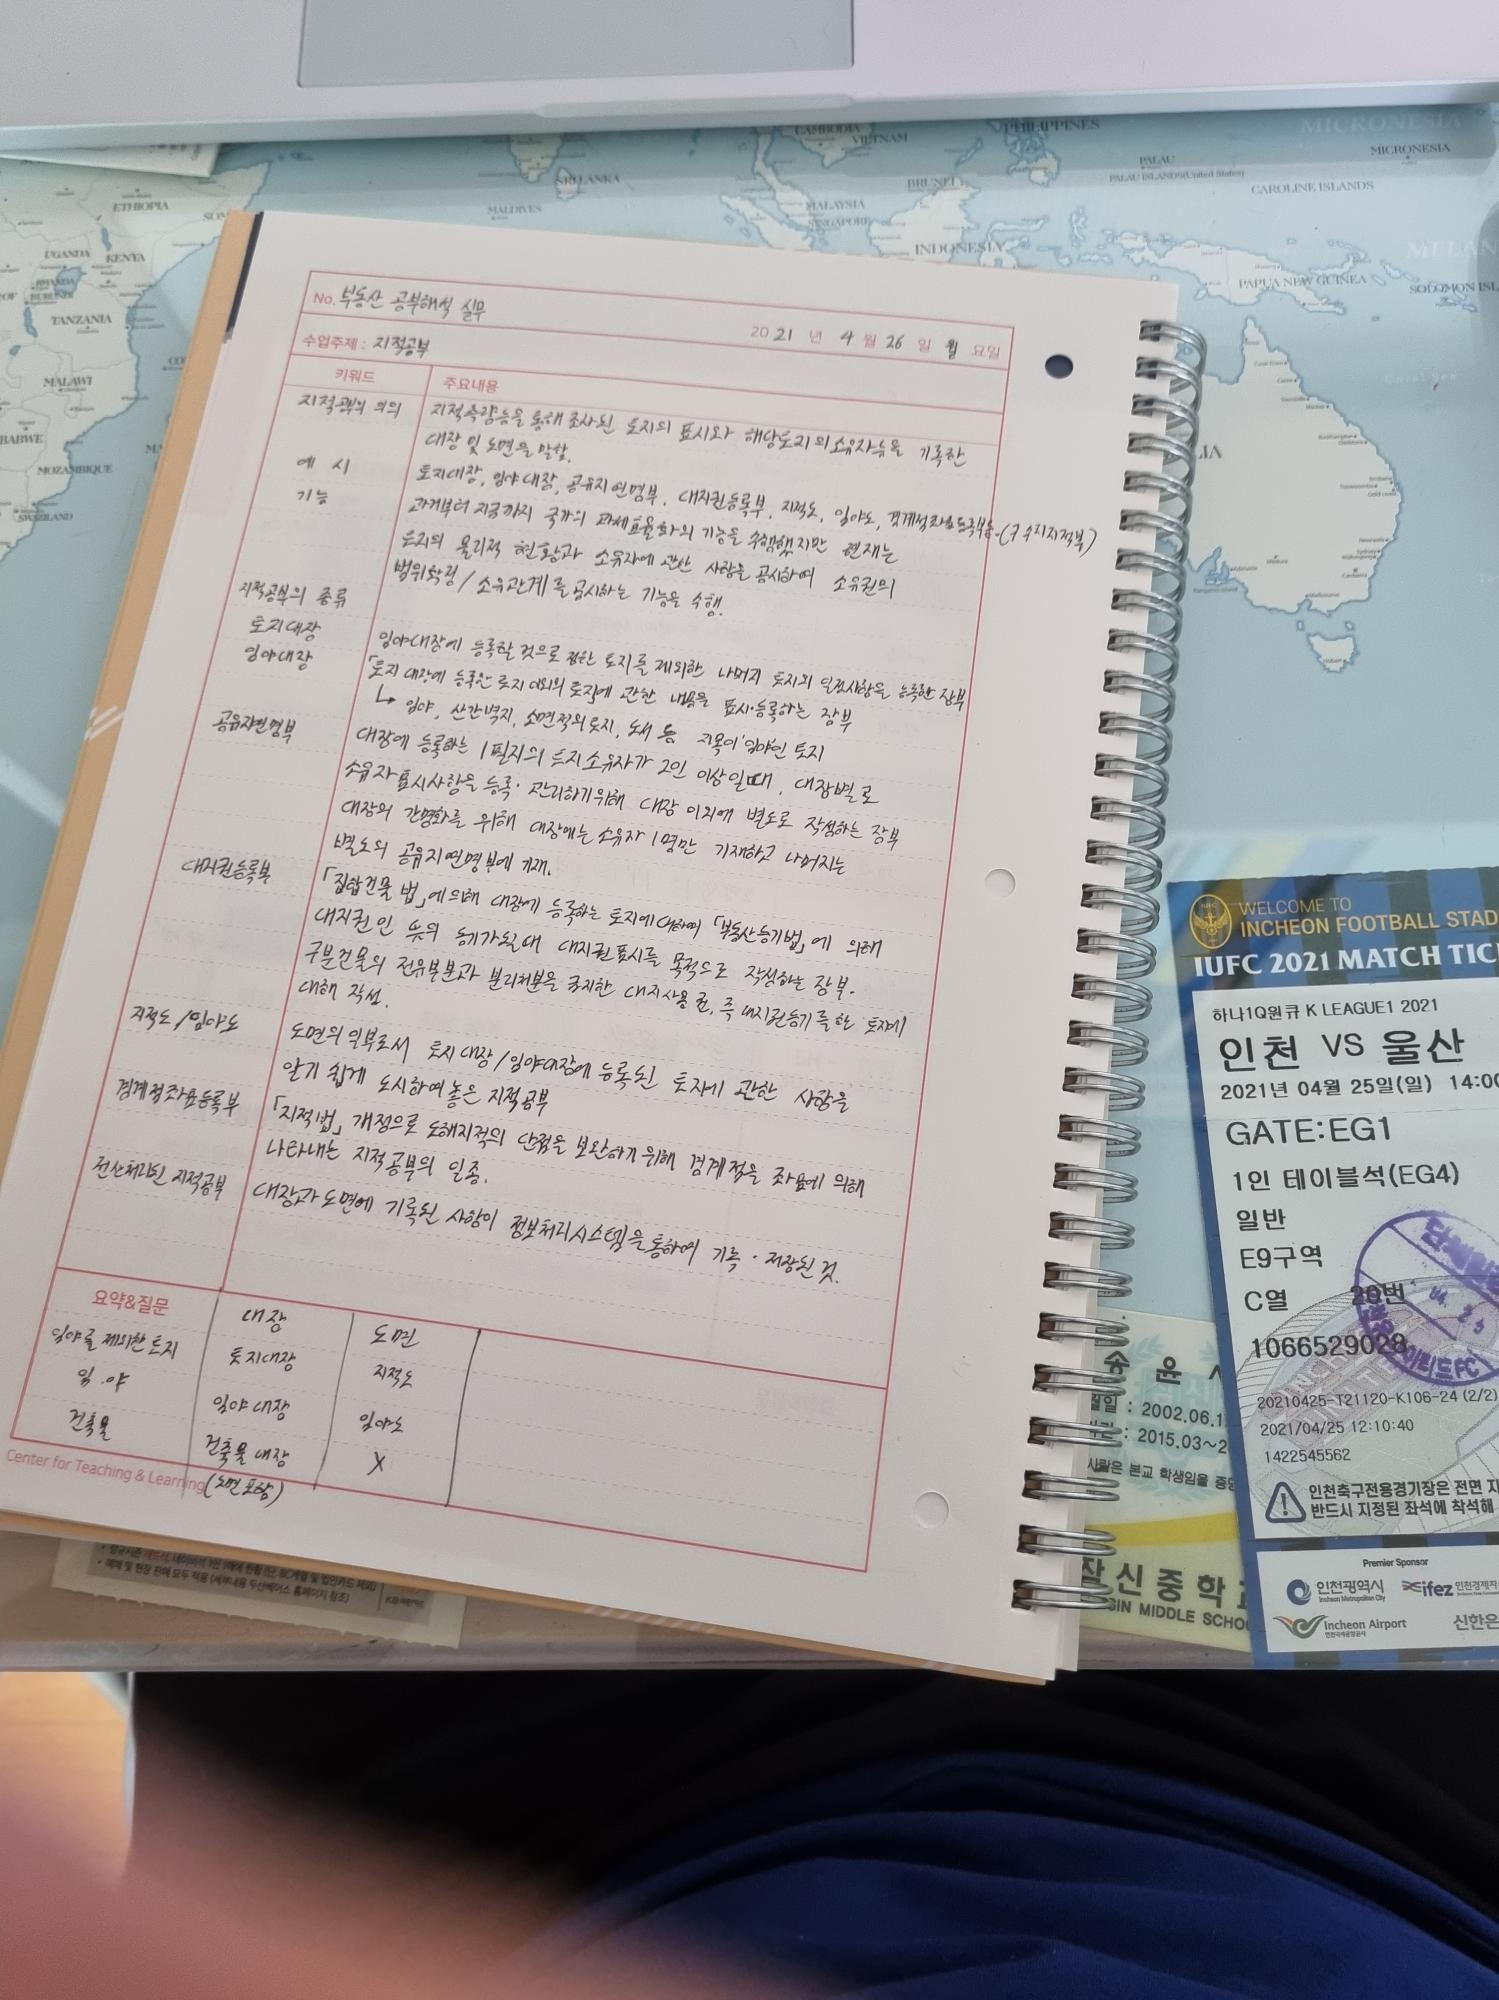 CAMBODIA
VIETNAM
PHILIPPINES
MICRONESIA
MICRONESIA
PALAU
PALAU ISLANDS(United States)
CAROLINE ISLANDS
SRI LANKA
MALDIVES
BRUNEI
MALAYSIA
SINGAPORE
INDONESIA
PAPUA NEW GUINEA
SOLOMON ISL
MELAN
ETHIOPIA
SOM
UGANDA
KENYA
RWANDA
BURUNDI
TANZANIA
MALAWI
MOZAMBIQUE
SWAZILAND
BABWE
LIA
No. 부동산 공부해석 실무
2021 년 4 월 26 일 월 요일
수업주제 : 지적공부
키워드
주요내용
지적공부의 의의
지적측량등을 통해 조사된 토지의 표시와 해당토지의 소유자등을 기록한
대장 및 도면을 말함.
예 시
토지대장, 임야대장, 공유지연명부, 대지권등록부, 지적도, 임야도, 경계점좌표등록부등.(구 수치지적부)
기능
과거부터 지금까지 국가의 과세효율화의 기능을 수행했지만 현재는
토지의 물리적 현황과 소유자에 관한 사항을 공시하여 소유권의
범위확정 / 소유관계를 공시하는 기능을 수행.
지적공부의 종류
토지대장
임야대장에 등록할 것으로 정한 토지를 제외한 나머지 토지의 일정사항을 등록한 장부
임야대장
「토지대장에 등록한 토지 이외의 토지」에 관한 내용을 표시·등록하는 장부
↳ 임야, 산간벽지, 소면적의 토지, 도서 등 지목이 '임야'인 토지
공유지연명부
대장에 등록하는 1필지의 토지소유자가 2인 이상일때, 대장별로
소유자표시사항을 등록·관리하기위해 대장 이외에 별도로 작성하는 장부
대장의 간명화를 위해 대장에는 소유자 1명만 기재하고 나머지는
별도의 공유지연명부에 기재.
대지권등록부
「집합건물법」에 의해 대장에 등록하는 토지에 대하여 「부동산등기법」에 의해
대지권인 뜻의 등기가 된때 대지권표시를 목적으로 작성하는 장부.
구분건물의 전유부분과 분리처분을 금지한 대지사용권, 즉 대지권등기를 한 토지에
대해 작성.
지적도 / 임야도
도면의 일부로서 토지대장/임야대장에 등록된 토지에 관한 사항을
알기 쉽게 도시하여 놓은 지적공부
경계점좌표등록부
「지적법」 개정으로 도해지적의 단점을 보완하기 위해 경계점을 좌표에 의해
나타내는 지적공부의 일종.
전산처리된 지적공부
대장과 도면에 기록된 사항이 정보처리시스템을 통하여 기록·저장된 것.
요약&질문
대장
도면
임야를 제외한 토지
토지대장
지적도
임 야
임야대장
임야도
건축물
건축물 대장
X
(도면 포함)
Center for Teaching & Learning
WELCOME TO
INCHEON FOOTBALL STAD
IUFC 2021 MATCH TIC
하나1Q원큐 K LEAGUE1 2021
인천 VS 울산
2021년 04월 25일(일) 14:00
GATE:EG1
1인 테이블석(EG4)
일반
E9구역
C열 20번
1066529028
20210425-T21120-K106-24 (2/2)
2021/04/25 12:10:40
1422545562
인천축구전용경기장은 전면 지
반드시 지정된 좌석에 착석해
Premier Sponsor
인천광역시
Incheon Metropolitan City
ifez
인천경제자
Incheon Airport
신한은
송 윤
: 2002.06.1
: 2015.03~2
사람은 본교 학생임을 증명
신중학교
SIN MIDDLE SCHO
예매 및 현장 판매 모두 적용 (세부내용 두산베어스 홈페이지 참조)